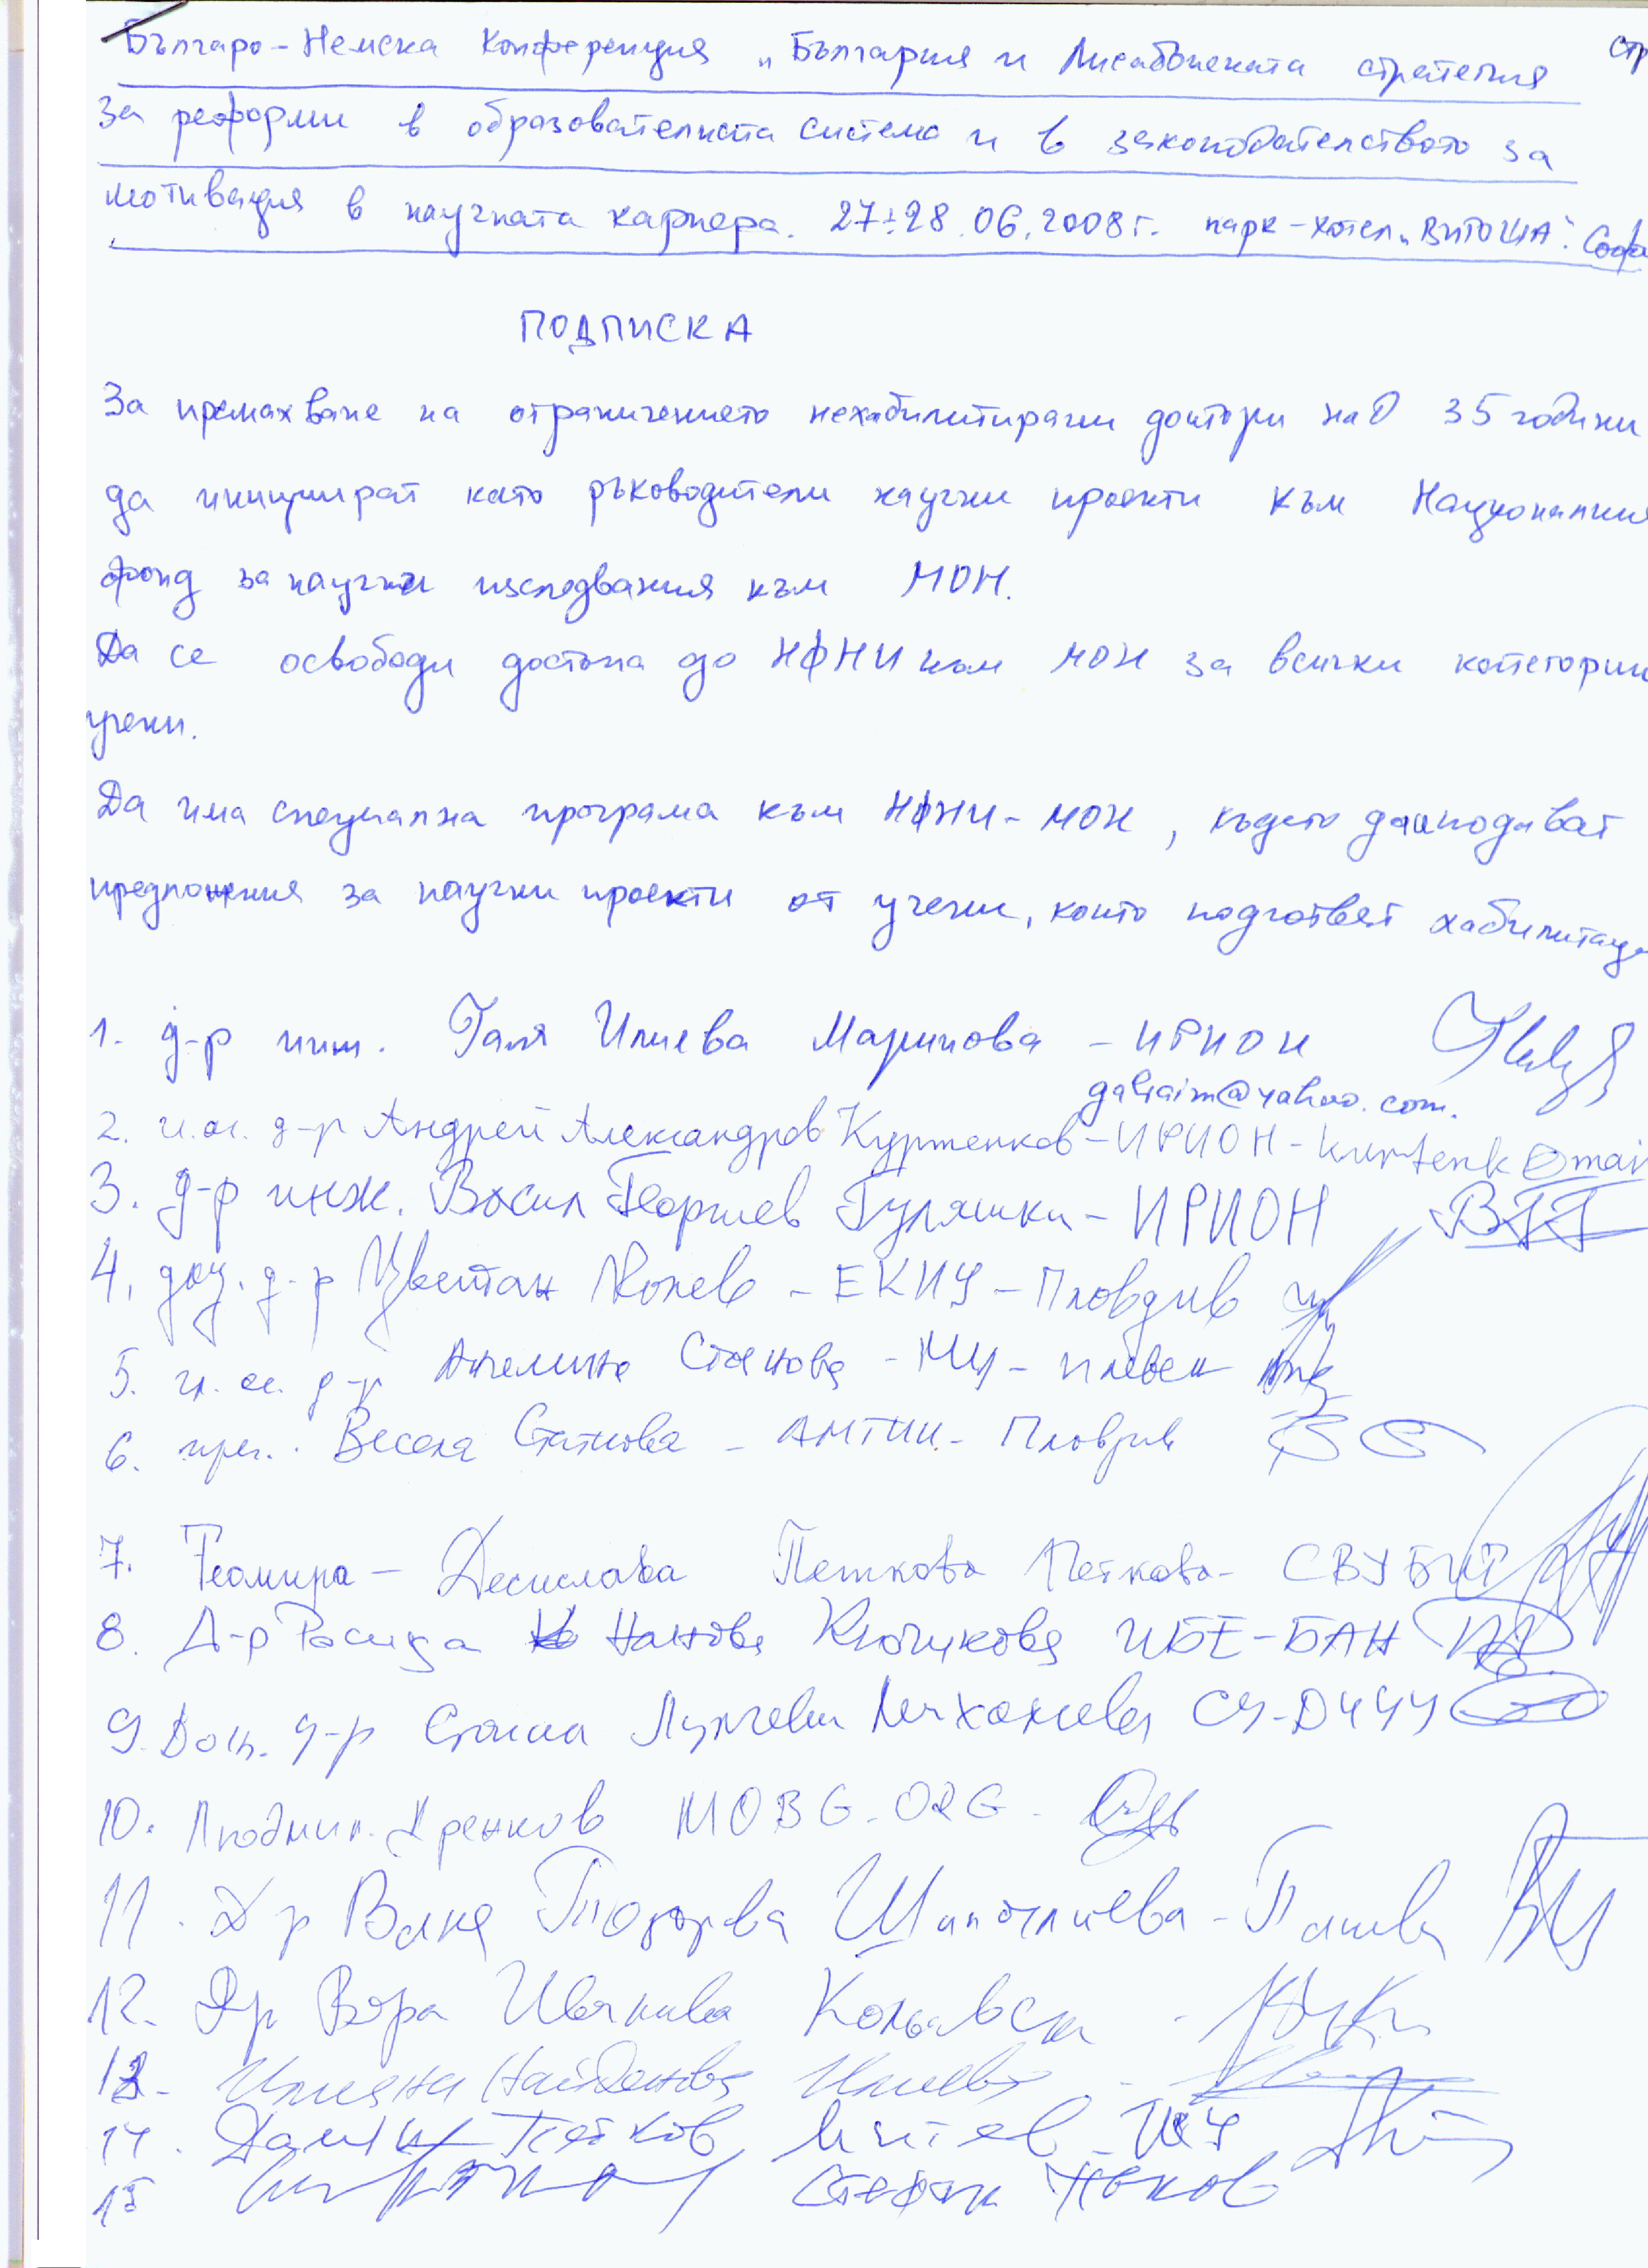 Българо-Немска Конференция „България и Лисабонската стратегия стр
за реформи в образователната система и в законодателството за
мотивация в научната кариера. 27÷28.06.2008г. парк-хотел „ВИТОША". Софи
ПОДПИСКА
За премахване на ограничението нехабилитирани доктори над 35 години
да инициират като ръководители научни проекти към Националния
фонд за научни изследвания към МОН.
Да се освободи достъпа до НФНИ към МОН за всички категории
учени.
Да има специална програма към НФНИ-МОН, където да се подават
предложения за научни проекти от учени, които подготвят хабилитаци
1. д-р инж. Галя Илиева Маринова - ИРИОН
galiaim@yahoo.com.
2. н.с. д-р Андрей Александров Куртенков - ИРИОН - kurtenk@mai
3. д-р инж. Васил Георгиев Гуляшки - ИРИОН
4. доц. д-р Цветан Колев - ЕКИУ - Пловдив
5. гл. ас. д-р Ангелина Стоянова - МУ - Плевен
6. Весела Статкова - АМТИИ - Пловдив
7. Теомира - Десислава Петкова Петкова - СВУБИТ
8. Д-р Росица Нанова Кючукова ИБЕ-БАН
9. Доц. д-р Стоила
10. Людмил Дренков MOBG.ORG -
11. Д-р Ваня Тодорова Шапчалиева - Пашева
12. Д-р Вяра Иванова
13. Илияна Найденова Илиева
14. Петков Митев - ТУ
15 Стефан Янков